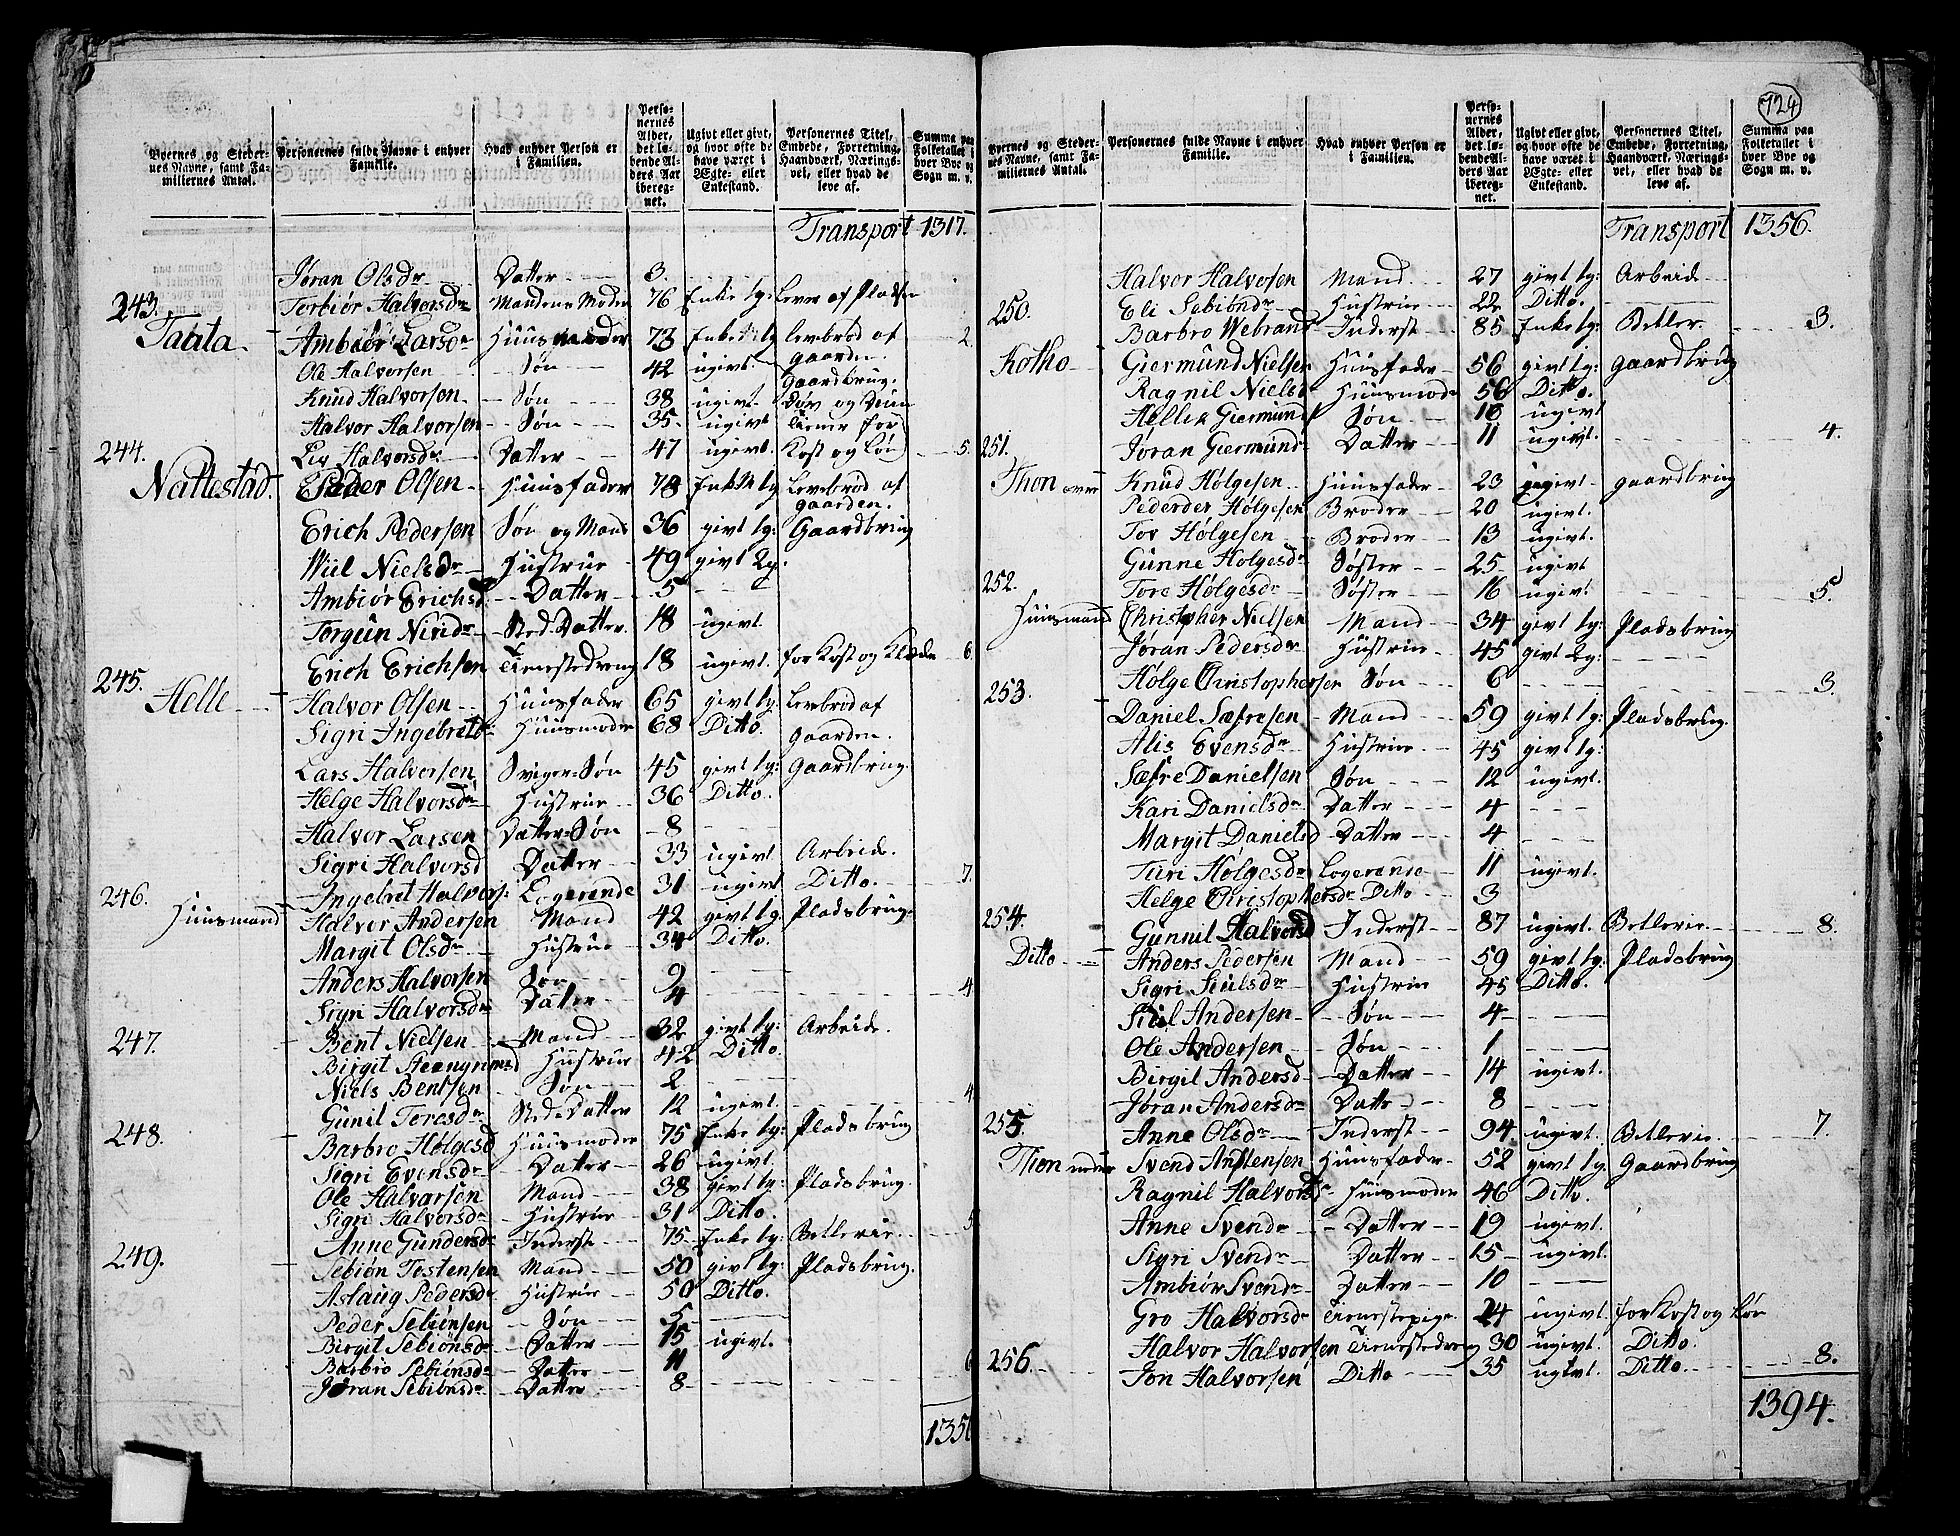 Byernes og Steder-
nes Navne, samt Fa-
miliernes Antal.
Personernes fulde Navne i enhver
Familie.
Hvad enhver Person er
i Familien.
Perso-
nernes
Alder,
det lø-
bende Al-
ders Aar
iberegnet.
Ugivt eller givt,
og hvor ofte de
have været i
Ægte- eller
Enkestand.
Personernes Titel,
Embede, Forretning,
Haandværk, Nærings-
vei, eller hvad de
leve af.
Summa paa
Folketallet i
hver Bye og
Sogn m. v.
Transport 1317.
Jøran Olsdr Datter 3.
243. Torbiør Halvorsdr Mandens Moder 76 Enke 1g: Lever af Pladsen 2.
Taata Ambiør Larsdr Huusmoder 73 Enke 1g Levebrød af gaarden.
Ole Halvorsen Søn 42 ugivt. Gaardbrug.
Knud Halvorsen Søn 38 ugivt Døv og Dum
Halvor Halvorsen Søn 35 ugivt Tiener for
244. Liv Halvorsdr Datter 47 ugivt. Kost og Løn 5.
Nattestad. Peder Olsen Huusfader 78 Enke 1g Levebrød af gaarden.
Erich Pedersen Søn og Mand 36 givt 1g: Gaardbrug
Wiil Nielsdr Hustrue 49 givt 2g.
Ambiør Erichsd Datter 5
Torgun Nirid Sted-Datter 18 ugivt
245. Erich Erichsen Tienestedreng 18 ugivt. for Kost og Klæde 6.
Helle Halvor Olsen Huusfader 65 givt 1g: Levbrød af gaarden.
Sigri Ingebretsdr Huusmoder 68 Ditto.
Lars Halvorsen Sviger-Søn 45 givt 1g: Gaardbrug.
Helge Halvorsdr Hustrue 36 Ditto.
Halvor Larsen Datter-Søn 8
Sigri Halvorsd Datter 33 ugivt Arbeide.
246. Ingebret Halvors: Logerende 31 ugivt Ditto. 7.
Huusmand Halvor Andersen Mand 42 givt 1g: Pladsbrug.
Margit Olsdr Hustrue 34 Ditto.
Anders Halvorsen Søn 9
Sigri Halvorsdr Datter 4 4.
247. Bent Nielsen Mand 32 givt 1g: Arbeide.
Birgit Hustrue 42 Ditto.
Niels Bentsen Søn 2
Gunil Toresdr Sted-Datter 12 ugivt. 4
248. Barbro Holgesd Huusmoder 75 Enke 1g: Pladsbrug
Sigri Evensdr Datter 26 ugivt.
Ole Halvorsen Mand 38 givt 1g: Pladsbrug.
Sigri Halvorsdr Hustrue 31 Ditto.
Anne Gundersdr Inderst 75 Enke 1g: Betlerie. 5
249. Sebiøn Tostensen Mand 50 givt 1g: Pladsbrug.
Aslaug Pedersdr Hustrue 50 Ditto.
Peder Sebiønsen Søn 5
Birgit Sebiønsdr Datter 15 ugivt.
Barbro Sebiønsdr Datter 11 6
Jøran Sebiønsdr Datter 8
135
724
Byernes og Steder-
nes Navne, samt Fa-
miliernes Antal.
Personernes fulde Navne i enhver
Familie.
Hvad enhver Person er
i Familien.
Perso-
nernes
Alder,
det lø-
bende Al-
ders Aar
iberegnet.
Ugivt eller givt,
og hvor ofte de
have været i
Ægte- eller
Enkestand.
Personernes Titel,
Embede, Forretning,
Haandværk, Nærings-
vei, eller hvad de
leve af.
Summa paa
Folketallet i
hver Bye og
Sogn m. v.
Transport 1356.
Halvor Halvorsen Mand 27 givt 1g: Arbeid
250. Eli Sebiøndr Hustrue 22 Ditto.
Barbro Webrand Inderst 85 Enke 1g: Betler 3.
Kotho Giermund Nielsen Huusfader 56 givt 1g: gaardbrug
Ragnil Nielsd Huusmodr 56 Ditto.
Giermunds Søn ugivt
251. Jøran Giermund Datter 11 ugivt. 4.
Thon over Knud Holgesen Huusfader 23 ugivt gaardbrug
Peder Holgesen Broder 20 ugivt.
Tov Holgesen Broder 13 ugivt.
Gunne Holgesdr Søster 25 ugivt
252. Tore Holgesdr Søster 16 ugivt 5.
Huusmand Christopher Nielsen Mand 34 givt 1g: Pladsbrug
Jøran Pedersdr Hustrue 45 givt 2g:
Holge Christophersen Søn 6 3.
253. Daniel Sæfresen Mand 59 givt 1g: Pladsbrug.
Alis Evensdr Hustrue 45 givt 1g:
Sæfre Danielsen Søn 12 ugivt.
Kari Danielsdr Datter 4
Margit Danielsd Datter 4
Turi Holgesdr Logerende 11 ugivt.
Helge Christophersdr Ditto 3
254. Gunnil Halvorsd Inderst 87 ugivt. Betlerie. 8.
Ditto Anders Pedersen Mand 59 givt 1g: Pladsbrug
Sigri Siulsdr Hustrue 45 Ditto.
Siul Andersen Søn 4
Ole Andersen Søn 1
Birgil Andersd Datter 14 ugivt.
Jøran Andersdr Datter 8
255. Anne Olsdr Inderst 94 ugivt. Betlerie. 7.
Thon neder Svend Anstensen Huusfader 52 givt 1g Gaardbrug
Ragnil Halvorsdr Huusmoder 46 Ditto.
Anne Svendr Datter 19 ugivt.
Sigri Svendr Datter 15 ugivt.
Ambiør Svendr Datter 10
Gro Halvorsdr Tienestepige 24 ugivt. for Kost og Løn
Halvor Halvorsen Tienestedreng 30 ugivt. Ditto.
256. Jon Halvorsen Ditto 35 ugivt. Ditto. 8.
1394.